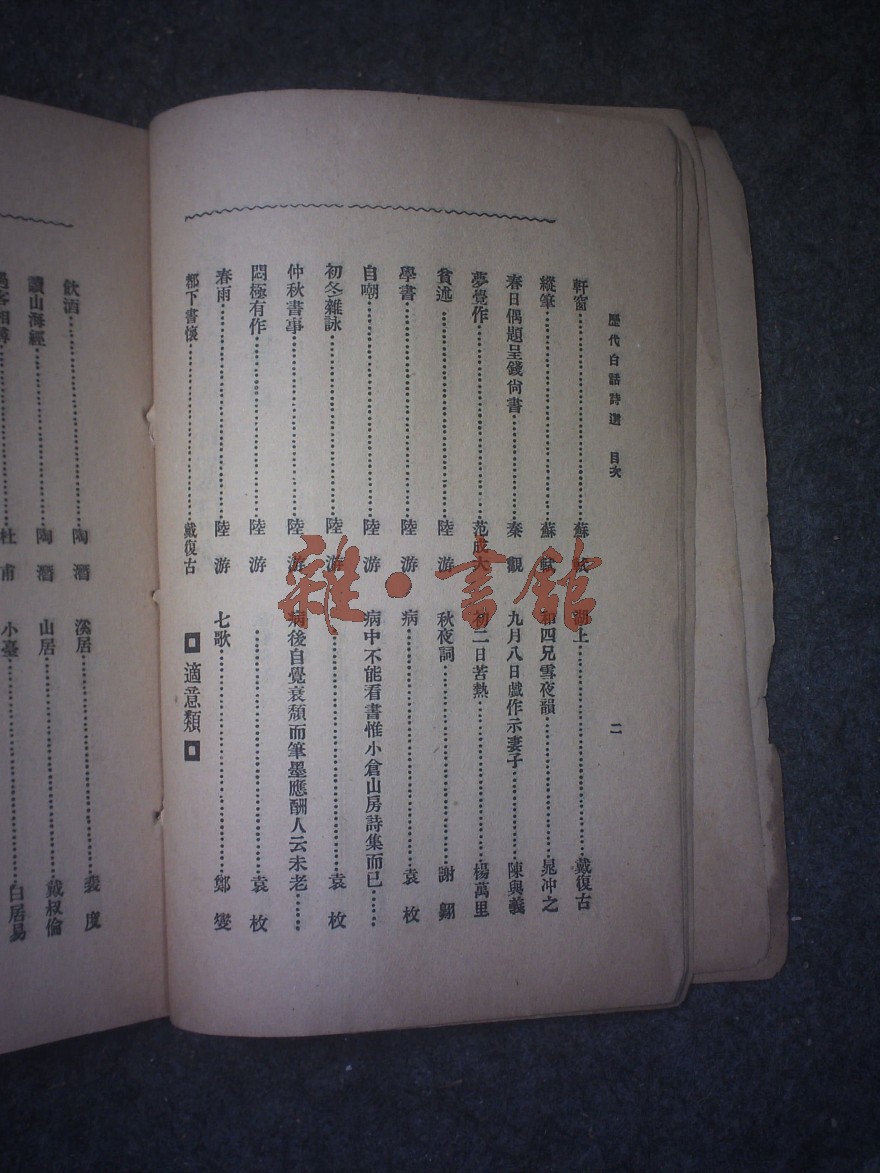 歷代白話詩選 目次 二
軒窗……蘇軾
縱筆……蘇軾
春日偶題呈錢尚書……秦觀
夢覺作……范成大
貧述……陸游
學書……陸游
自嘲……陸游
初冬雜詠……陸游
仲秋書事……陸游
悶極有作……陸游
春雨……陸游
下書懷……戴復古
湖上……戴復古
和四兄雪夜韻……晁冲之
九月八日戲作示妻子……陳與義
初二日苦熱……楊萬里
秋夜詞……謝翱
病……袁枚
病中不能看書惟小倉山房詩集而已……
……袁枚
病後自覺衰頹而筆墨應酬人云未老……
……袁枚
七歌……鄭燮
適意類
飲酒……陶潛
讀山海經……陶潛
客相尋……杜甫
溪居……裴度
山居……戴叔倫
小臺……白居易
雜·書館